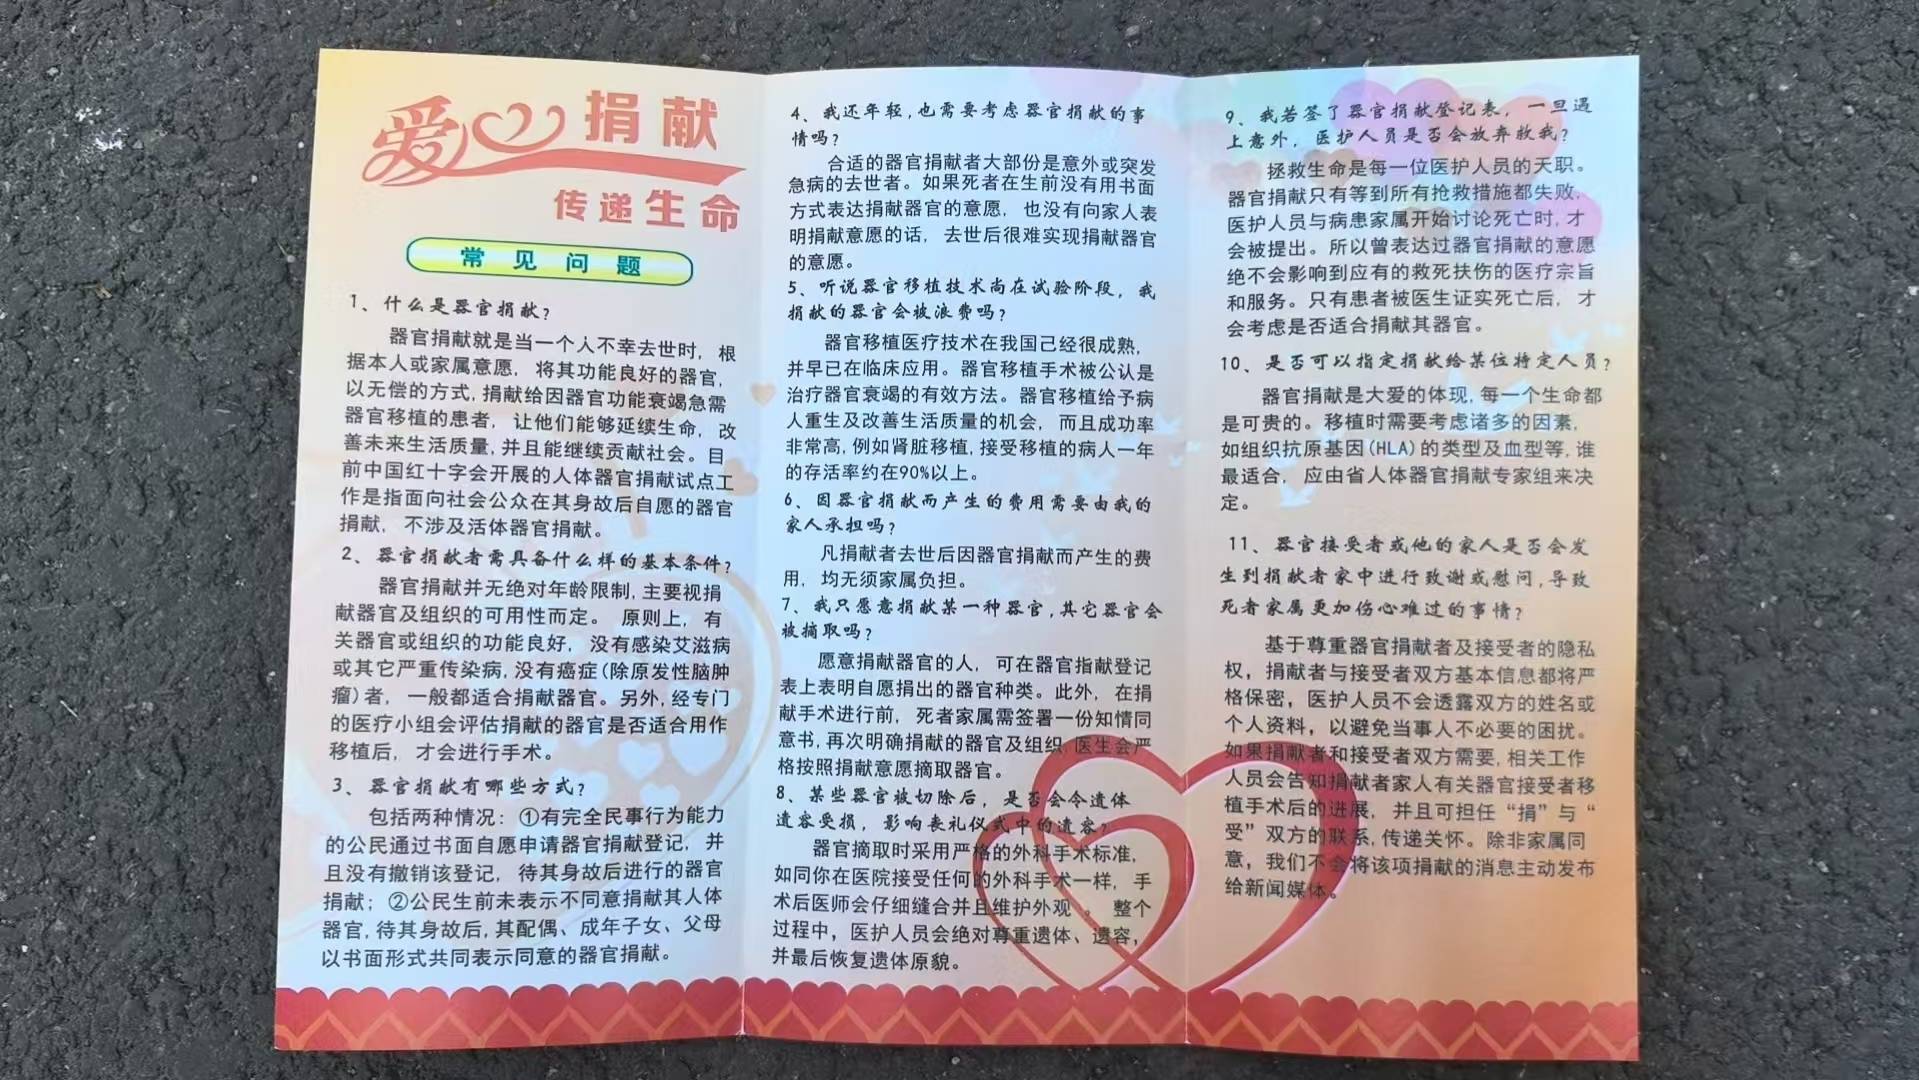 爱心捐献
传递生命
常见问题
1、什么是器官捐献?
器官捐献就是当一个人不幸去世时，根
据本人或家属意愿，将其功能良好的器官，
以无偿的方式,捐献给因器官功能衰竭急需
器官移植的患者，让他们能够延续生命，改
善未来生活质量,并且能继续贡献社会。目
前中国红十字会开展的人体器官捐献试点工
作是指面向社会公众在其身故后自愿的器官
捐献，不涉及活体器官捐献。
2、器官捐献者需具备什么样的基本条件?
器官捐献并无绝对年龄限制,主要视捐
献器官及组织的可用性而定。原则上，有
关器官或组织的功能良好，没有感染艾滋病
或其它严重传染病,没有癌症(除原发性脑肿
瘤)者，一般都适合捐献器官。另外,经专门
的医疗小组会评估捐献的器官是否适合用作
移植后，才会进行手术。
3、器官捐献有哪些方式?
包括两种情况：①有完全民事行为能力
的公民通过书面自愿申请器官捐献登记，并
且没有撤销该登记，待其身故后进行的器官
捐献；②公民生前未表示不同意捐献其人体
器官,待其身故后,其配偶、成年子女、父母
以书面形式共同表示同意的器官捐献。
4、我还年轻,也需要考虑器官捐献的事
情吗?
合适的器官捐献者大部份是意外或突发
急病的去世者。如果死者在生前没有用书面
方式表达捐献器官的意愿，也没有向家人表
明捐献意愿的话，去世后很难实现捐献器官
的意愿。
5、听说器官移植技术尚在试验阶段，我
捐献的器官会被浪费吗?
器官移植医疗技术在我国已经很成熟，
并早已在临床应用。器官移植手术被公认是
治疗器官衰竭的有效方法。器官移植给予病
人重生及改善生活质量的机会，而且成功率
非常高,例如肾脏移植,接受移植的病人一年
的存活率约在90%以上。
6、因器官捐献而产生的费用需要由我的
家人承担吗?
凡捐献者去世后因器官捐献而产生的费
用，均无须家属负担。
7、我只愿意捐献某一种器官,其它器官会
被摘取吗?
愿意捐献器官的人，可在器官指献登记
表上表明自愿捐出的器官种类。此外，在捐
献手术进行前，死者家属需签署一份知情同
意书,再次明确捐献的器官及组织,医生会严
格按照捐献意愿摘取器官。
8、某些器官被切除后，是否会令遗体
遗容受损，影响丧礼仪式中的遗容?
器官摘取时采用严格的外科手术标准，
如同你在医院接受任何的外科手术一样，手
术后医师会仔细缝合并且维护外观 。 整个
过程中，医护人员会绝对尊重遗体、遗容，
并最后恢复遗体原貌。
9、我若签了器官捐献登记表，一旦遇
上意外，医护人员是否会放弃救我?
拯救生命是每一位医护人员的天职。
器官捐献只有等到所有抢救措施都失败，
医护人员与病患家属开始讨论死亡时，才
会被提出。所以曾表达过器官捐献的意愿
绝不会影响到应有的救死扶伤的医疗宗旨
和服务。只有患者被医生证实死亡后，才
会考虑是否适合捐献其器官。
10、是否可以指定捐献给某位特定人员?
器官捐献是大爱的体现,每一个生命都
是可贵的。移植时需要考虑诸多的因素，
如组织抗原基因(HLA)的类型及血型等,谁
最适合，应由省人体器官捐献专家组来决
定。
11、器官接受者或他的家人是否会发
生到捐献者家中进行致谢或慰问,导致
死者家属更加伤心难过的事情?
基于尊重器官捐献者及接受者的隐私
权，捐献者与接受者双方基本信息都将严
格保密，医护人员不会透露双方的姓名或
个人资料，以避免当事人不必要的困扰。
如果捐献者和接受者双方需要,相关工作
人员会告知捐献者家人有关器官接受者移
植手术后的进展，并且可担任“捐”与“
受”双方的联系,传递关怀。除非家属同
意，我们不会将该项捐献的消息主动发布
给新闻媒体。